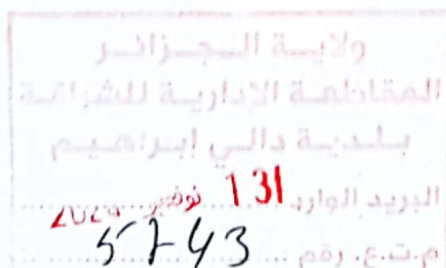 ولاية الجزائر
المقاطعة الإدارية للشراقة
بلدية دالي إبراهيم
البريد الوارد 13 نوفمبر
م.ت.ع. رقم 5743